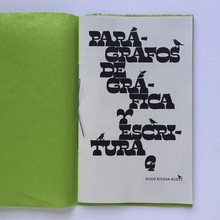 PARÁ-
GRAFOS
DE
GRÁ-
FICA
Y
ESCRI-
TURA
HUGO RIVERA-SCOTT